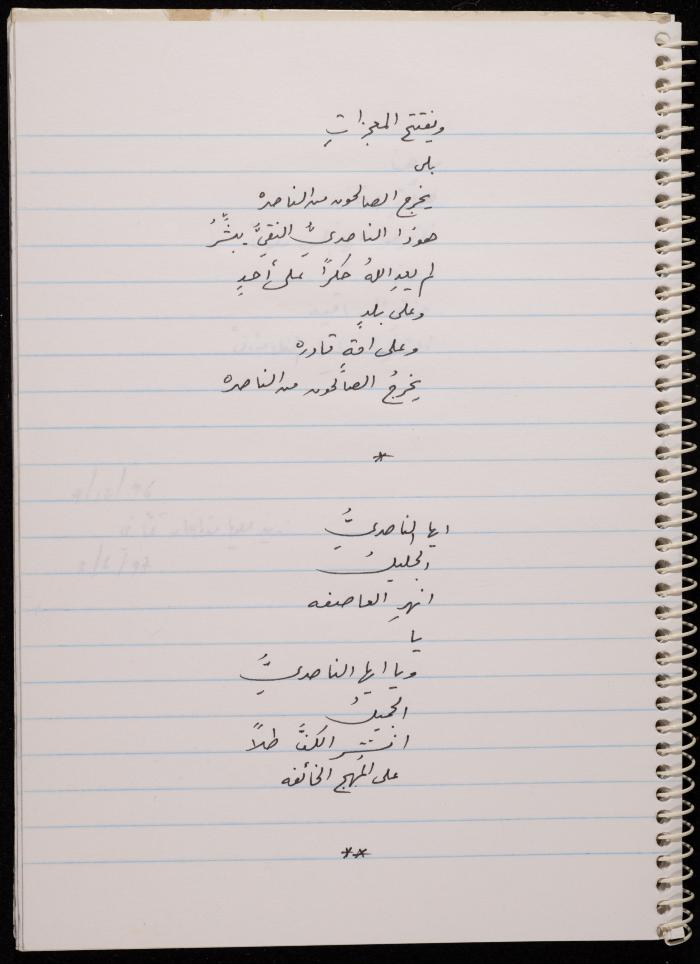 ويفتتح المعجزاتِ
بلى
يخرج الصالحون من الناصره
هوذا الناصريُّ النقيُّ يبشِّرُ
لم يعدِ اللهُ حكرًا على أحدٍ
وعلى بلدٍ
وعلى امّةٍ قادره
يخرجُ الصالحون من الناصره
*
ايها الناصريُّ
الجليلُ
انهرِ العاصفه
يا
ويا ايها الناصريُّ
الجميلُ
انشرِ الكفَّ ظلاً
على المُهجِ الخائفه
**